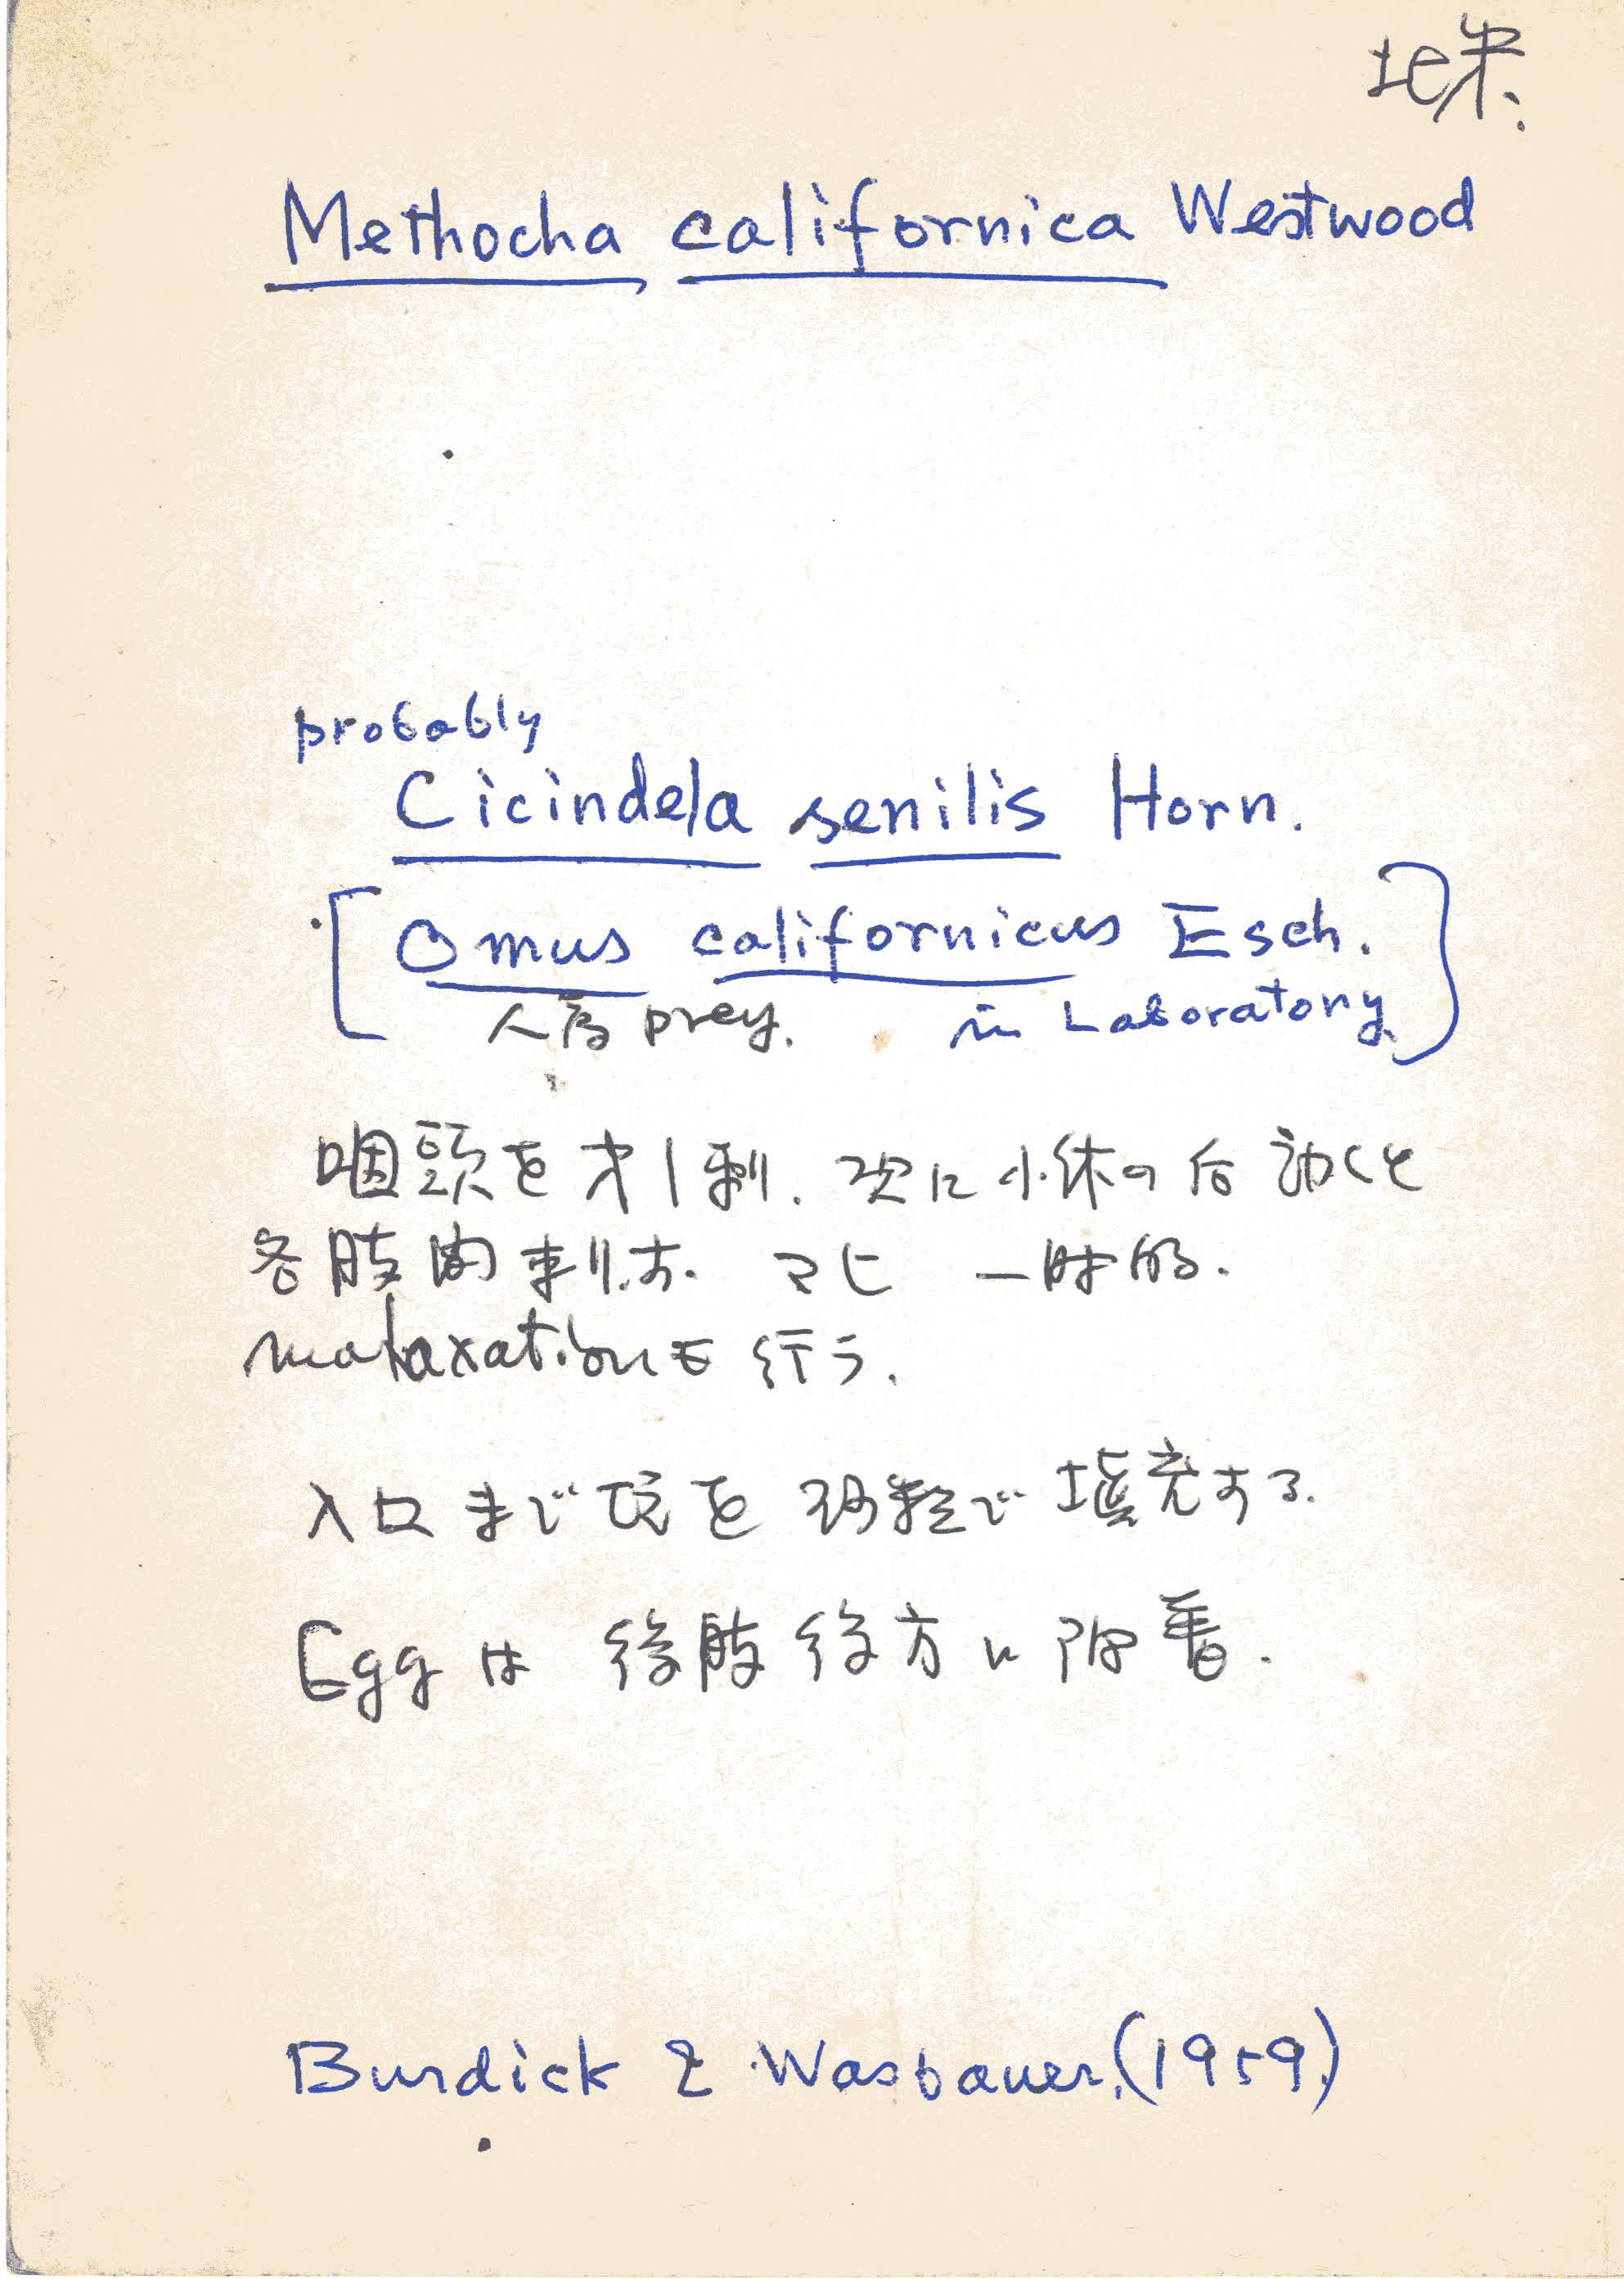 Methocha californica Westwood
probably
Cicindela senilis Horn.
[Omus californicus Esch.
人為 prey. in Laboratory.]
咽頭を才1刺. 次に小休の后 動くと
各肢間刺す. マヒ 一時的.
malaxationも行う.
入口まで坑を 砂粒で填充する.
Eggは 後肢後方に附着.
Burdick & Wasbauer.(1959.)